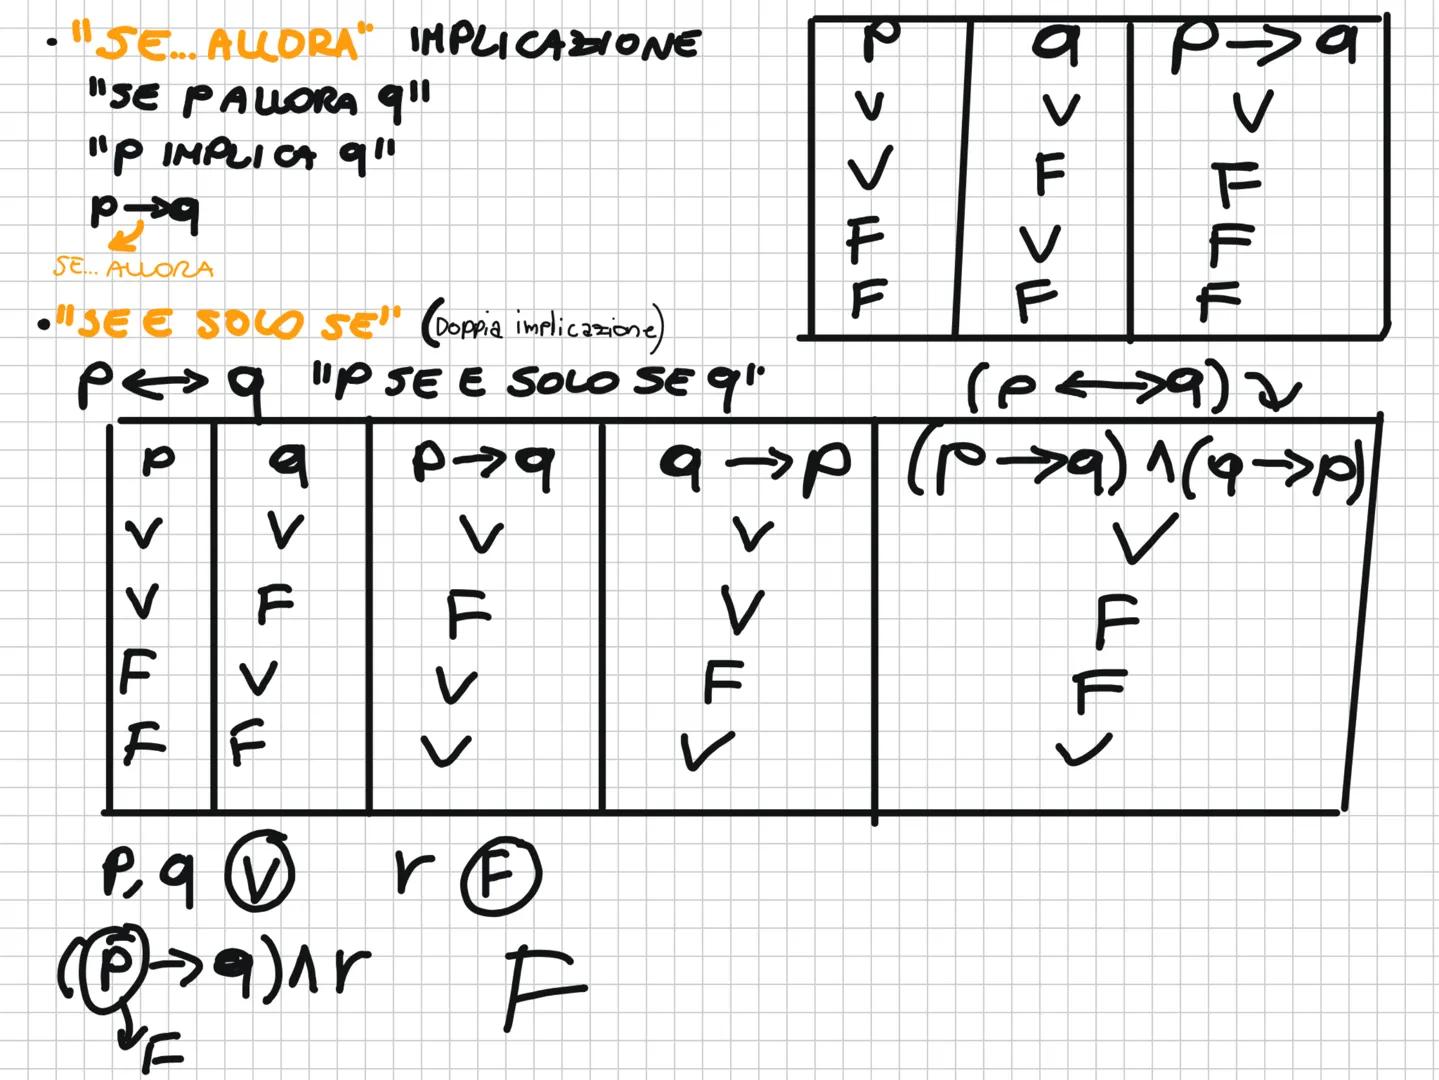 • "SE... ALLORA" IMPLICAZIONE
"SE P ALLORA q"
"P IMPLICA q"
p → q
SE... ALLORA
p q p → q
V V V
V F F
F V F
F F F
• "SE E SOLO SE" (Doppia implicazione)
p ↔ q "P SE E SOLO SE q"
(p ↔ q)
p q p → q q → p (p → q) ∧ (q → p)
V V V V V
V F F V F
F V V F F
F F V V V
p, q V r F
(p̅ → q) ∧ r F
F